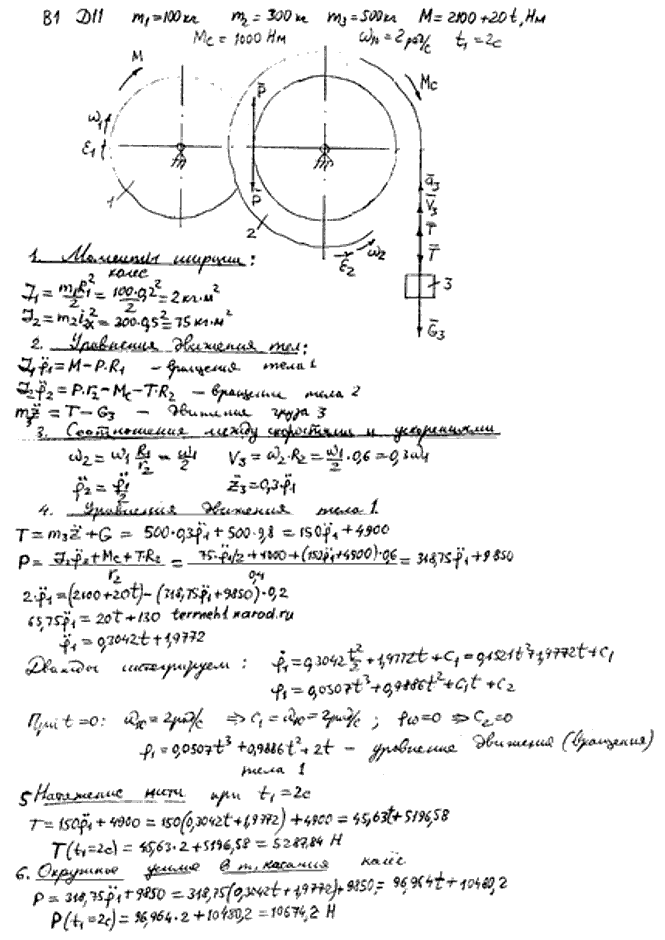 В1 D11 m₁=100кг m₂=300кг m₃=500кг M=2100+20t, Нм
Mc=1000 Нм ω₁₀=2рад/с t₁=2c
M
P̄
Mc
ω₁
ε₁
ā₃
V̄₃
T̄
P̄
T̄
1
2
ω₂
ε̄₂
3
Ḡ₃
1. Моменты инерции:
колес
J₁=m₁R₁²/2=100·0,2²/2=2кг·м²
J₂=m₂i₂ₓ²=300·0,5²=75кг·м²
2. Уравнения движения тел:
J₁φ̈₁=M-P·R₁ - вращения тела 1
J₂φ̈₂=P·r₂-Mc-T·R₂ - вращения тела 2
m₃z̈=T-G₃ - движения груза 3
3. Соотношения между скоростями и ускорениями
ω₂=ω₁R₁/r₂=ω₁/2 V₃=ω₂·R₂=ω₁/2·0,6=0,3ω₁
φ̈₂=φ̈₁/2 z̈₃=0,3φ̈₁
4. Уравнения движения тела 1.
T=m₃z̈+G=500·0,3φ̈₁+500·9,8=150φ̈₁+4900
P=(J₂φ̈₂+Mc+T·R₂)/r₂=(75·φ̈₁/2+1000+(150φ̈₁+4900)·0,6)/0,4=318,75φ̈₁+9850
2·φ̈₁=(2100+20t)-(318,75φ̈₁+9850)·0,2
65,75φ̈₁=20t+130 termeh1.narod.ru
φ̈₁=0,3042t+1,9772
Дважды интегрируем: φ̇₁=0,3042t²/2+1,9772t+C₁=0,1521t²+1,9772t+C₁
φ₁=0,0507t³+0,9886t²+C₁t+C₂
При t=0: ω₁₀=2рад/с ⇒C₁=ω₁₀=2рад/с; φ₁₀=0 ⇒C₂=0
φ₁=0,0507t³+0,9886t²+2t - уравнение движения (вращения)
тела 1
5 Натяжение нити при t₁=2c
T=150φ̈₁+4900=150(0,3042t+1,9772)+4900=45,63t+5196,58
T(t₁=2c)=45,63·2+5196,58=5287,84 Н
6. Окружное усилие в т. касания колёс
P=318,75φ̈₁+9850=318,75(0,3042t+1,9772)+9850=96,964t+10480,2
P(t₁=2c)=96,964·2+10480,2=10674,2 Н